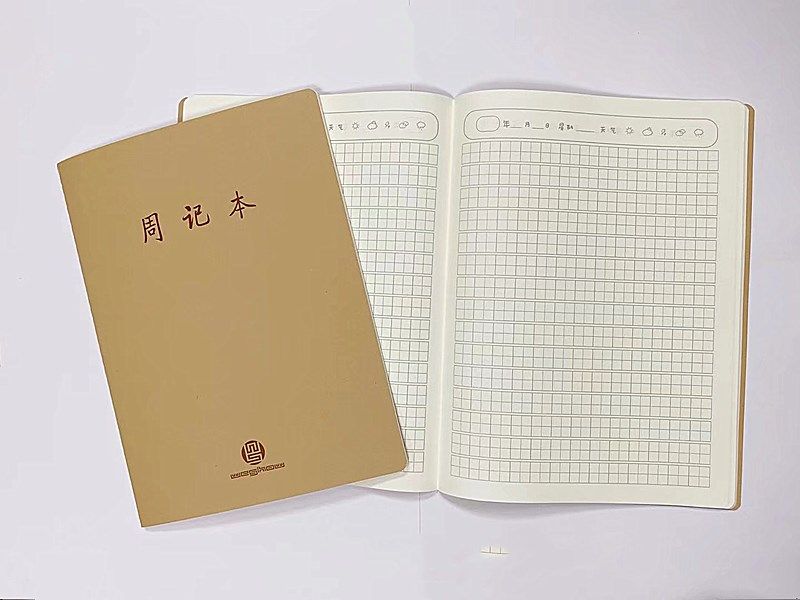 周记本
天气
年 月 日 星期 天气